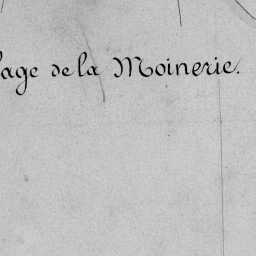 age de la Moinerie.